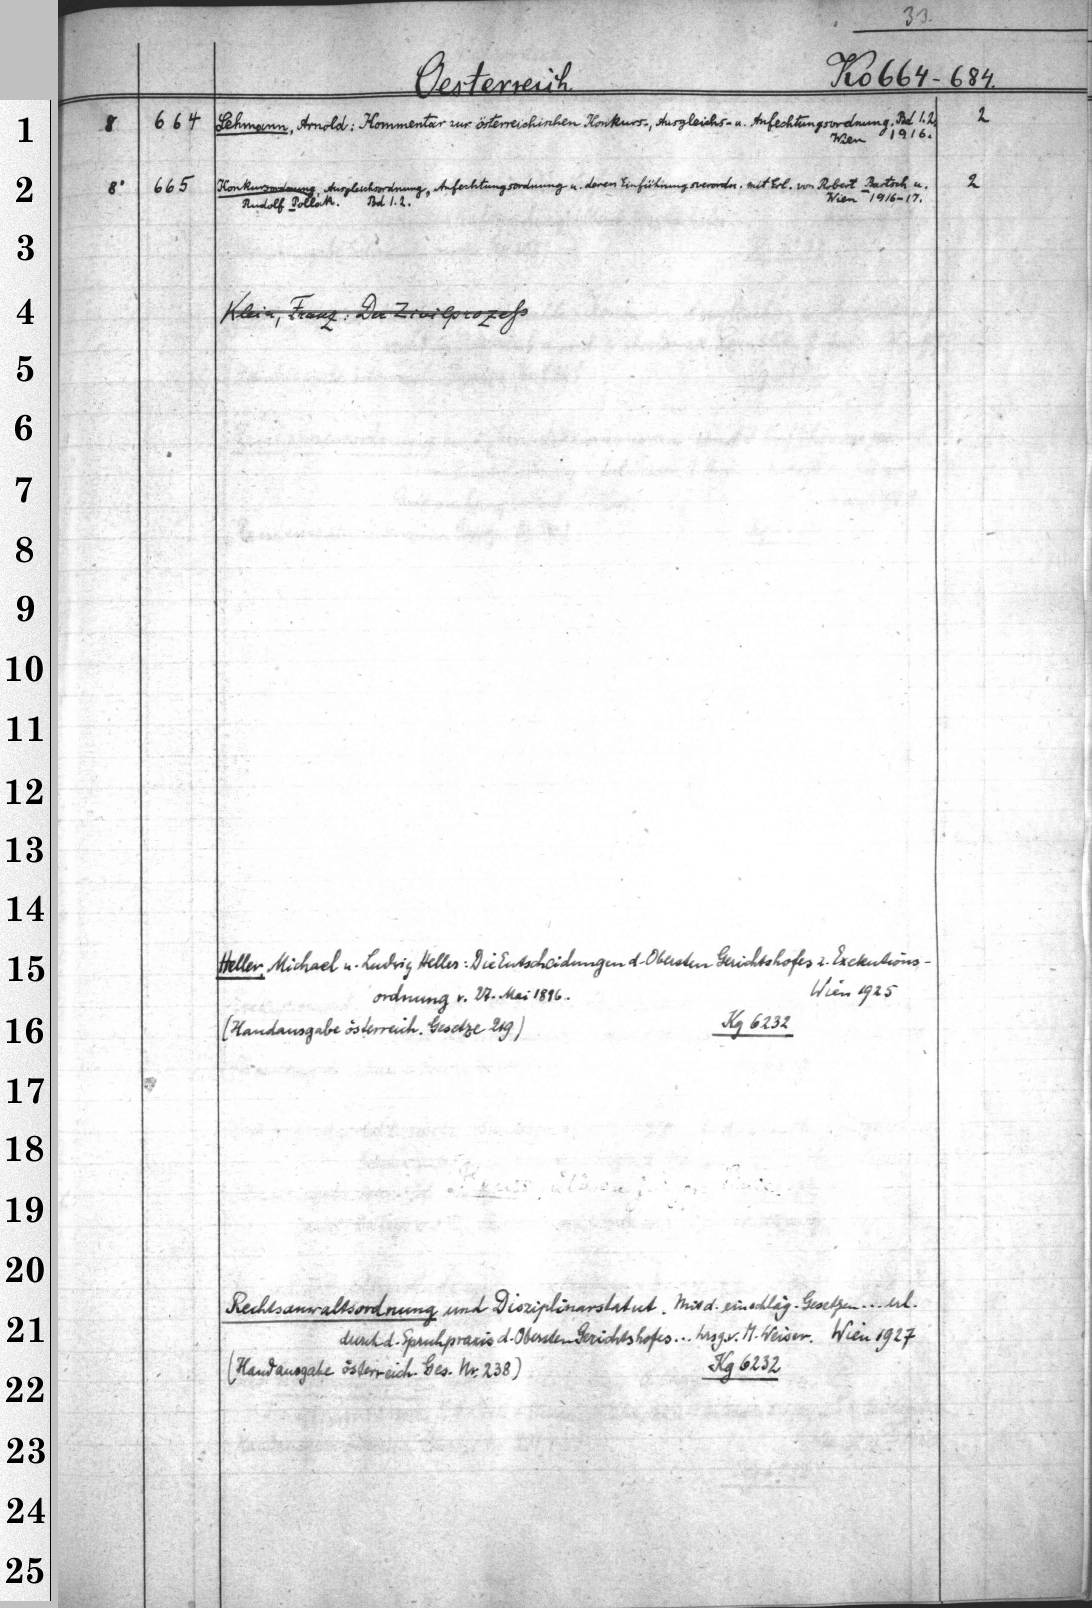 33.
Oesterreich. Ko 664-684.
1 8 664 Lehmann, Arnold: Kommentar zur österreichischen Konkurs-, Ausgleichs- u. Anfechtungsordnung. Bd 1.2. 2
Wien 1916.
2 8° 665 Konkursordnung, Ausgleichsordnung, Anfechtungsordnung u. deren Einführungsverordn. mit Erl. von Robert Bartsch u. 2
Rudolf Pollak. Bd 1.2. Wien 1916-17.
3
4 Klein, Franz: Der Zivilprozeß
5
6
7
8
9
10
11
12
13
14
15 Heller, Michael u. Ludwig Heller: Die Entscheidungen d. Obersten Gerichtshofes z. Exekutions-
ordnung v. 27. Mai 1896. Wien 1925
16 (Handausgabe österreich. Gesetze 219) Kg 6232
17
18
19
20
Rechtsanwaltsordnung und Disziplinarstatut. Mit d. einschläg. Gesetzen... erl.
21 durch d. Spruchpraxis d. Obersten Gerichtshofes... hrsg. v. M. Weiser. Wien 1927
22 (Handausgabe österreich. Ges. Nr. 238) Kg 6232
23
24
25